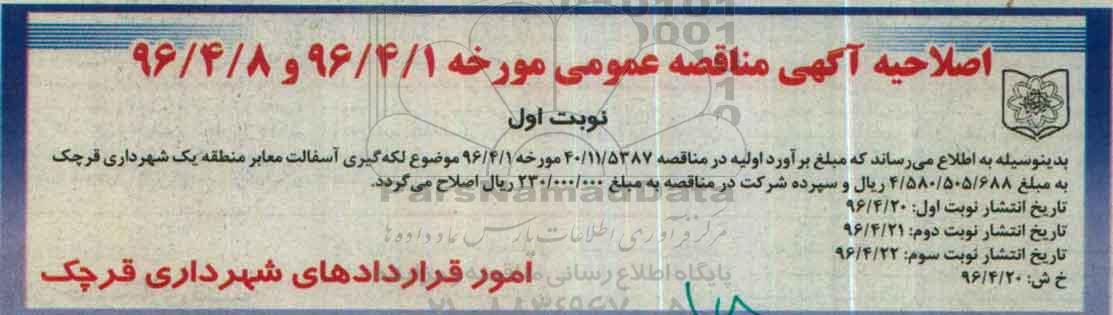 اصلاحیه آگهی مناقصه عمومی مورخه ۹۶/۴/۱ و ۹۶/۴/۸
نوبت اول
بدینوسیله به اطلاع می‌رساند که مبلغ برآورد اولیه در مناقصه ۴۰/۱۱/۵۳۸۷ مورخه ۹۶/۴/۱ موضوع لکه‌گیری آسفالت معابر منطقه یک شهرداری قرچک
به مبلغ ۴/۵۸۰/۵۰۵/۶۸۸ ریال و سپرده شرکت در مناقصه به مبلغ ۲۳۰/۰۰۰/۰۰۰ ریال اصلاح می‌گردد.
ParsNamadData
تاریخ انتشار نوبت اول: ۹۶/۴/۲۰
تاریخ انتشار نوبت دوم: ۹۶/۴/۲۱
مرکز فرآوری اطلاعات پارس نماد داده ها
تاریخ انتشار نوبت سوم: ۹۶/۴/۲۲
خ ش: ۹۶/۴/۲۰
پایگاه اطلاع رسانی
امور قراردادهای شهرداری قرچک